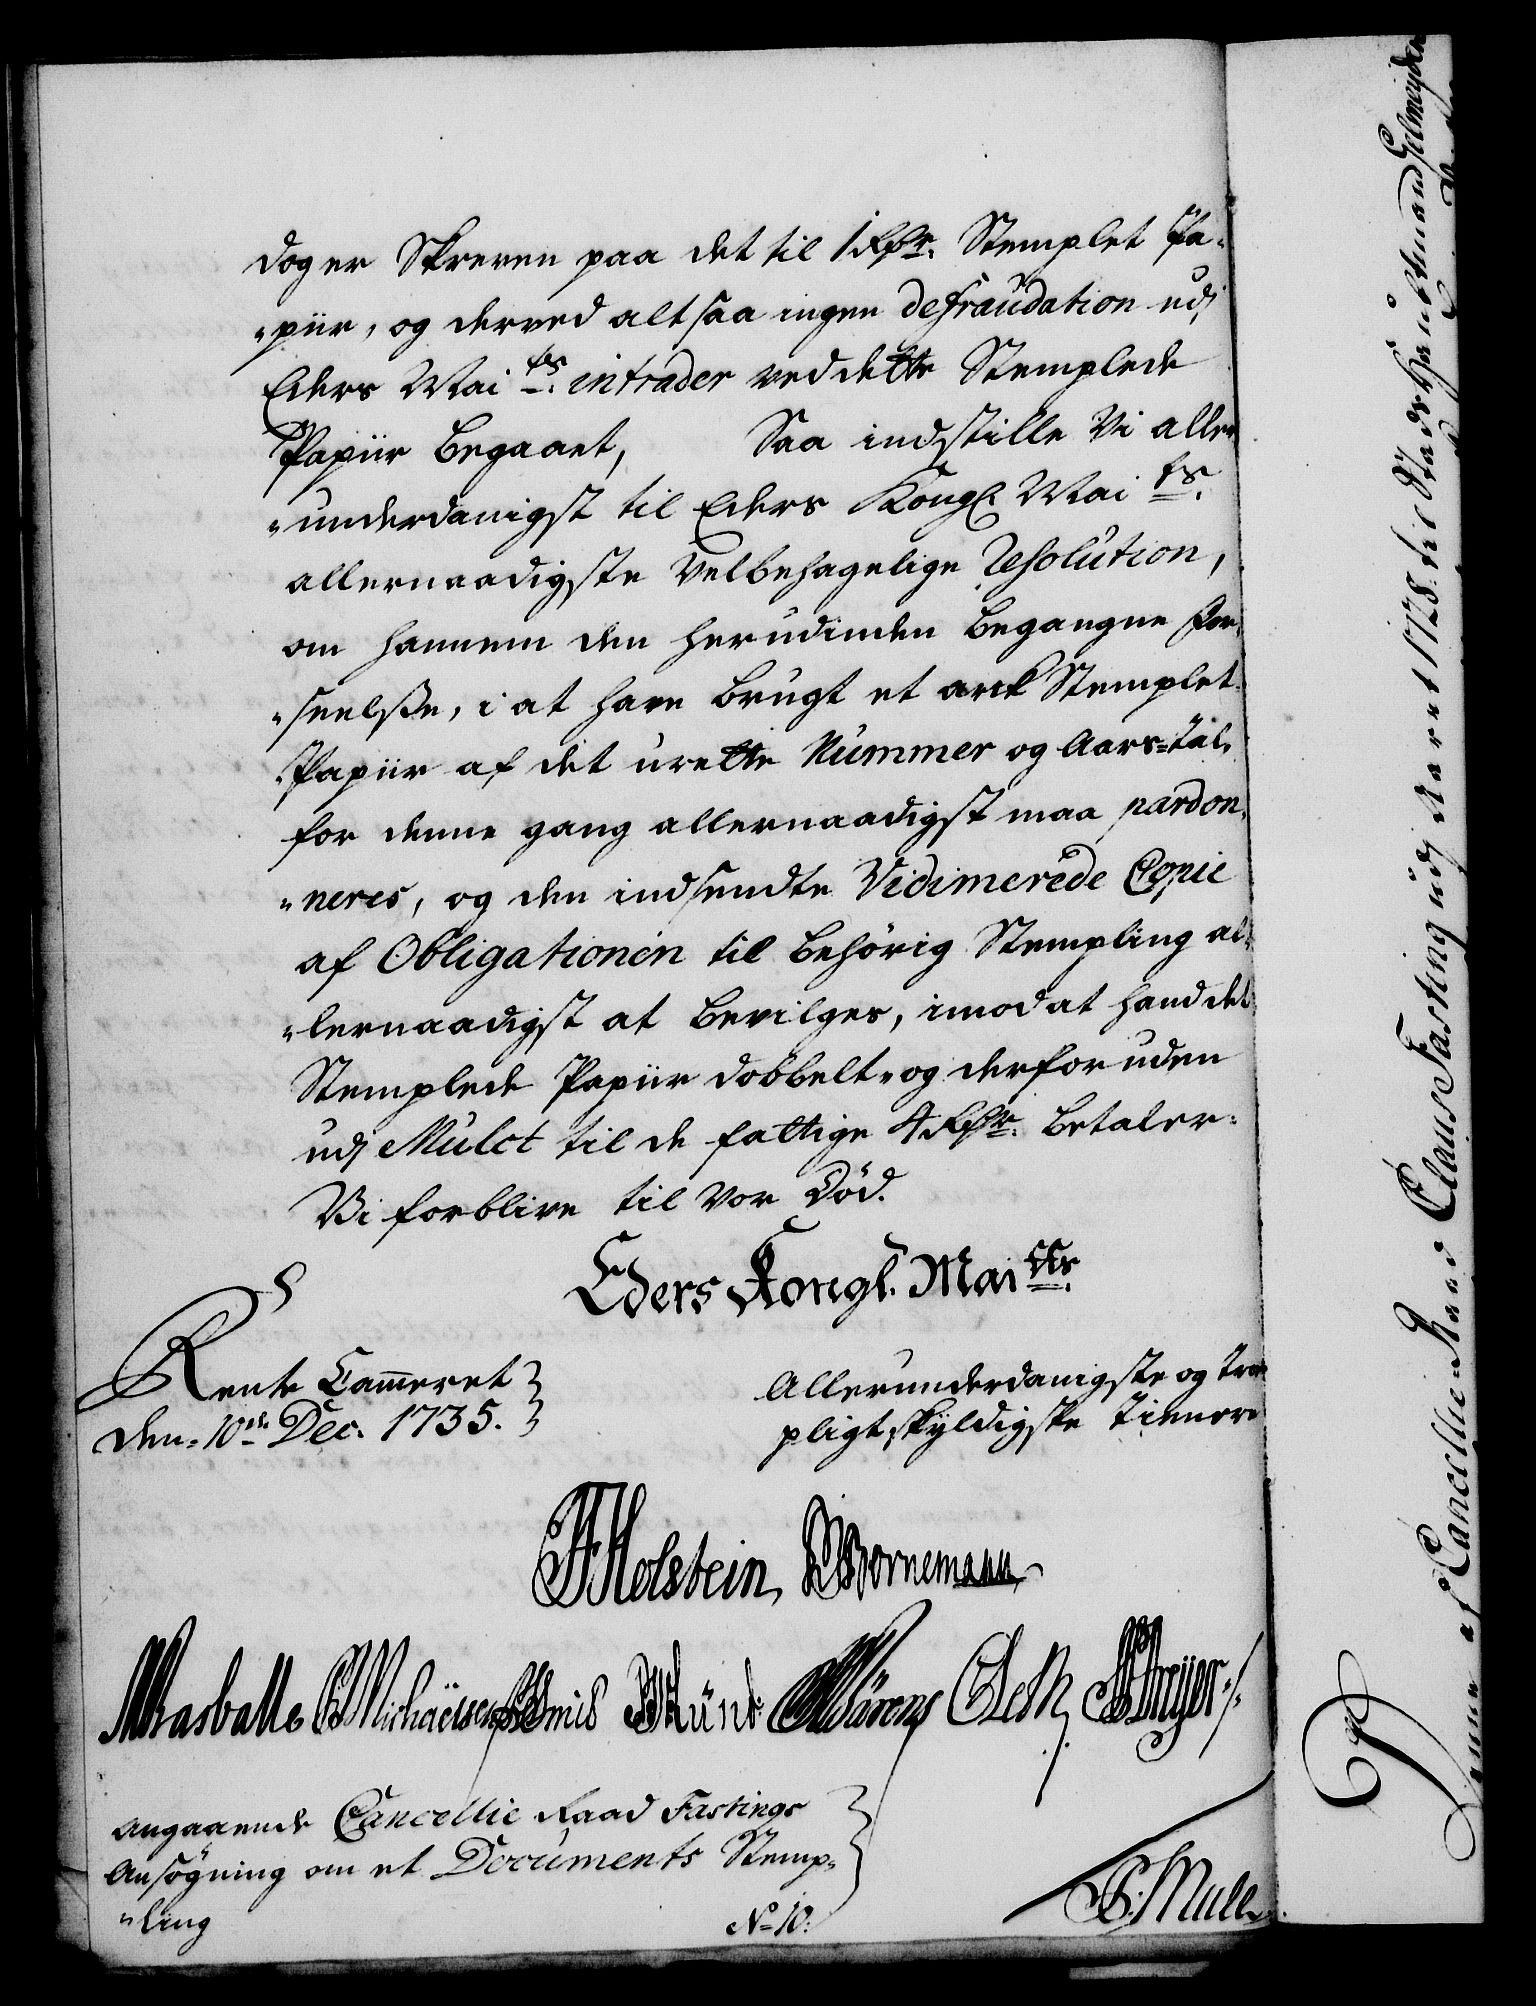 dog er Skreven paa det til 1 Rdlr. Stemplet Pa-
-piir, og derved alt saa ingen defraudation udj
Eders Mai ts. intrader ved dette Stemplede
Papiir begaaet, Saa indstille Vi aller
-underdanigst til Eders Kongl. Mai ts.
allernaadigste Velbehagelige Resolution,
om hannem den herudinden begangne For-
-seelsse, i at have brugt et arck Stemplet
Papiir af det urette Nummer og Aars-tal,
for denne gang allernaadigst maa pardon-
-neres, og den indsendte Vidimerede Copie
af Obligationen til behörig Stempling al-
-lernaadigst at bevilges, imod at hand det
Stemplede Papiir dobbelt- og derforuden
udj Mulct til de fattige 4 Rdlr. betaler.
Vi forblive til Vor Död.
Eders Kongl. Mai tts.
Rente Cammeret
den 10de Dec. 1735.
Allerunderdanigste og Troe
pligtskyldigste Tienere
Holstein, Bornemann
Rasballe Michaelsen Münt Sörens Dreyer
Angaaende Cancellie Raad Fastings
Ansögning om et Documents Stemp-
-ling
No 10.
Mull
af Cancellie Raad Claus Fasting udj Aaret 1728. til